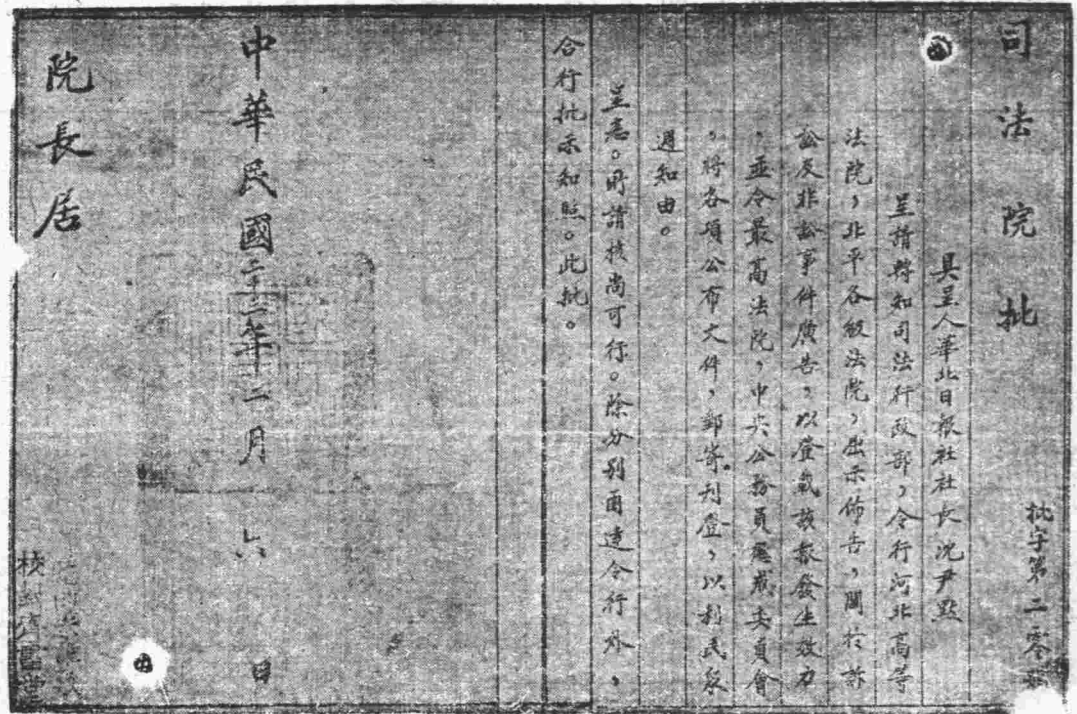 司法院批
批字第二零
具呈人華北日報社社長沈尹默
呈請轉知司法行政部,令行河北高等
法院,北平各級法院,出示佈告,關於訴
訟及非訟事件廣告,以登載該報發生效力
,並令最高法院,中央公務員懲戒委員會
,將各項公布文件,郵寄刊登,以利民眾
週知由。
呈悉。所請核尚可行。除分別函達令行外,
合行批示知照。此批。
院長居
中華民國二十二年十二月六日